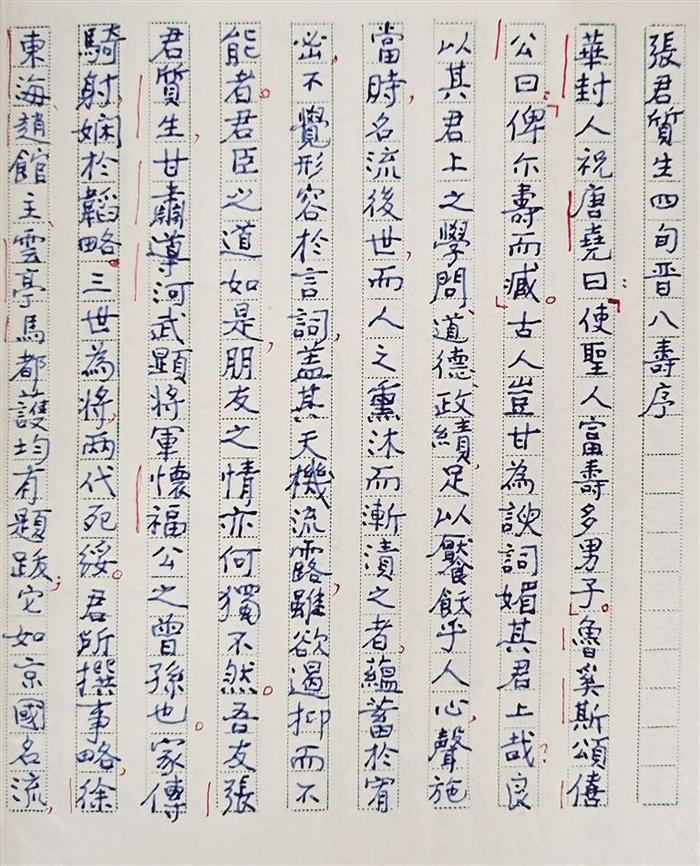 張君質生四旬晋八壽序
華封人祝唐堯曰：「使聖人富壽多男子」。魯奚斯頌僖
公曰：「俾尔壽而臧」。古人豈甘為諛詞媚其君上哉？良
以其君上之學問、道德、政績，足以饜飫乎人心，聲施
當時，名流後世，而人之熏沐而漸漬之者，蘊蓄於宥
宓，不覺形容於言詞，盖其天機流露，雖欲遏抑而不
能者。君臣之道如是，朋友之情亦何獨不然。吾友張
君質生，甘肅導河武顕將軍懷福公之曾孫也。家傳
騎射，嫻於韜略。三世為將，兩代死綏。君所撰事略，徐
東海、趙館主、雲亭馬都護均有題跋；它如京國名流，